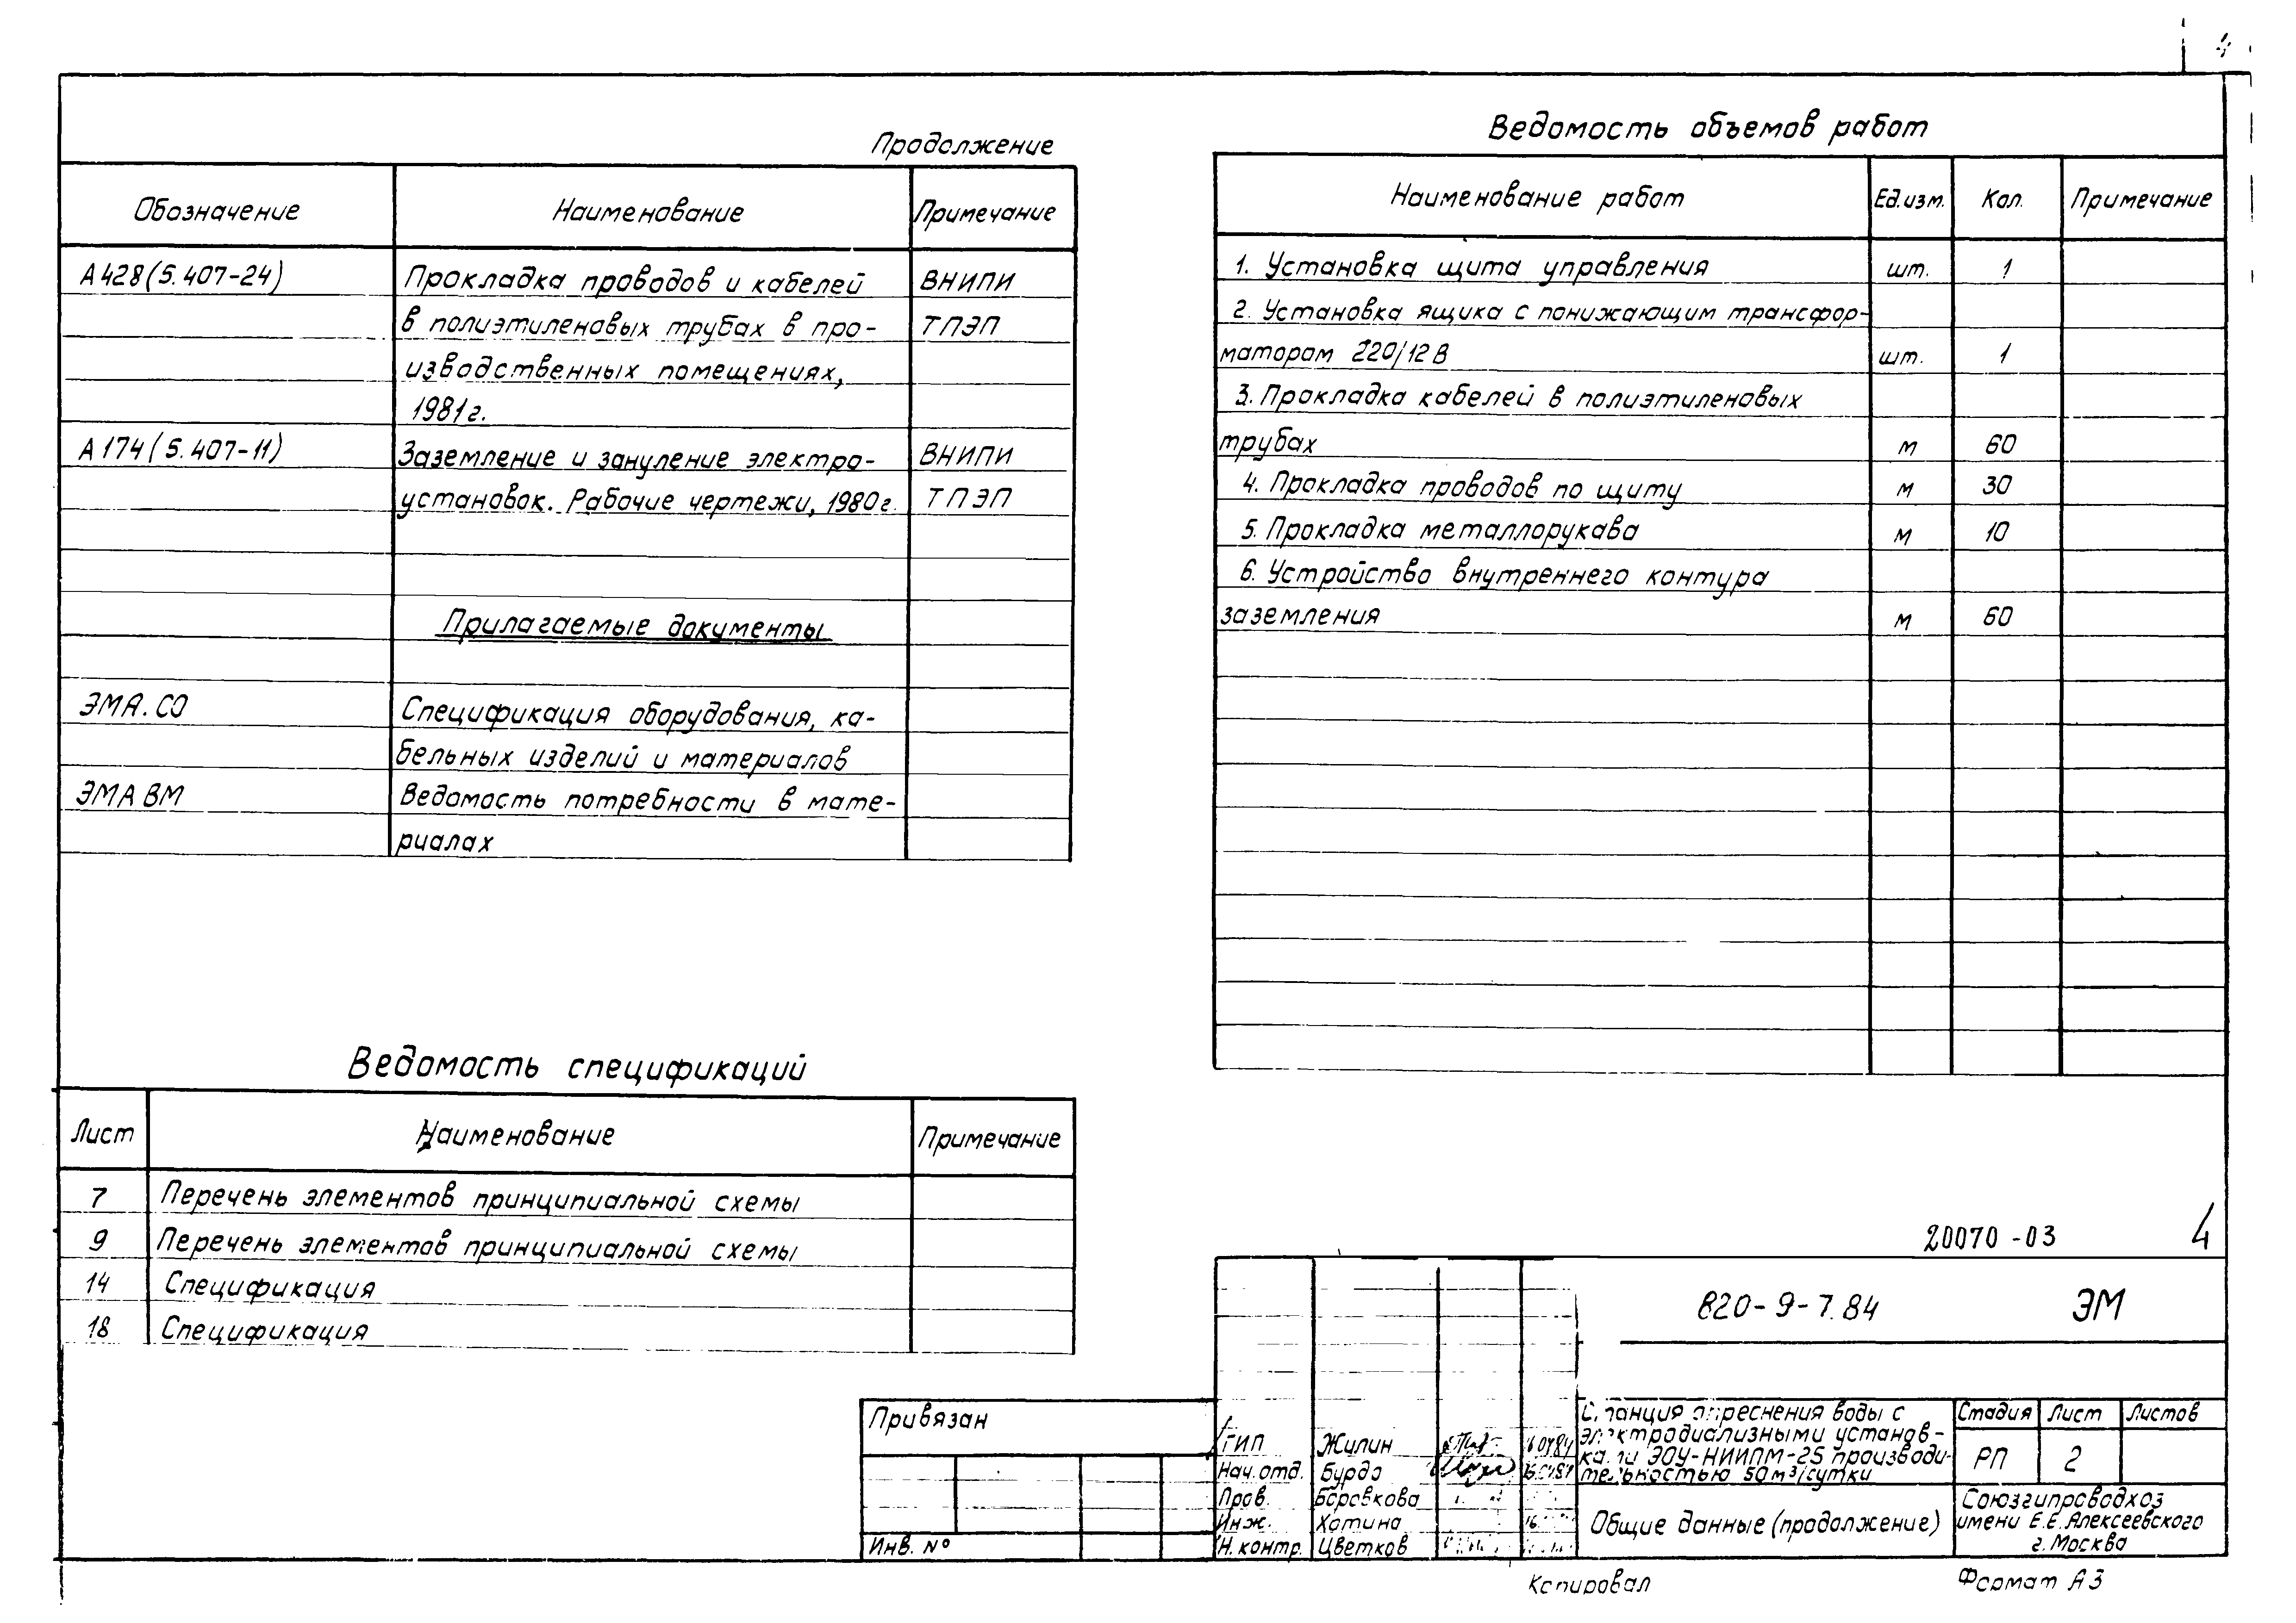 4
Продолжение
Обозначение Наименование Примечание
А428(5.407-24) Прокладка проводов и кабелей ВНИПИ
в полиэтиленовых трубах в про- ТПЭП
изводственных помещениях,
1981г.
А174(5.407-11) Заземление и зануление электро- ВНИПИ
установок. Рабочие чертежи, 1980г. ТПЭП
Прилагаемые документы
ЭМА.СО Спецификация оборудования, ка-
бельных изделий и материалов
ЭМА ВМ Ведомость потребности в мате-
риалах
Ведомость спецификаций
Лист Наименование Примечание
7 Перечень элементов принципиальной схемы
9 Перечень элементов принципиальной схемы
14 Спецификация
18 Спецификация
Ведомость объемов работ
Наименование работ Ед.изм. Кол. Примечание
1. Установка щита управления шт. 1
2. Установка ящика с понижающим трансфор-
матором 220/12В шт. 1
3. Прокладка кабелей в полиэтиленовых
трубах м 60
4. Прокладка проводов по щиту м 30
5. Прокладка металлорукава м 10
6. Устройство внутреннего контура
заземления м 60
20070-03 4
820-9-7.84 ЭМ
Привязан
Инв. №
ГИП Жилин
Нач.отд. Бурдо
Пров. Боровкова
Инж. Хотина
Н.контр. Цветков
Станция опреснения воды с
электродиализными установ-
ками ЭОУ-НИИПМ-25 производи-
тельностью 50м³/сутки
Стадия Лист Листов
РП 2
Общие данные (продолжение)
Союзгипроводхоз
имени Е.Е.Алексеевского
г.Москва
Копировал Формат А3